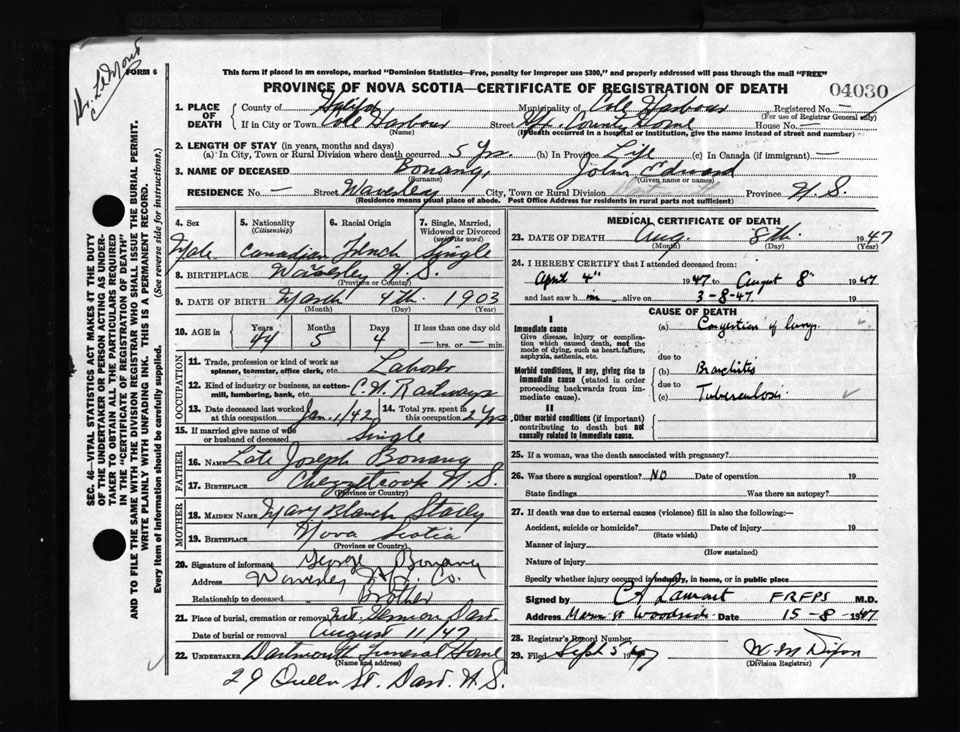 FORM 6
This form if placed in an envelope, marked "Dominion Statistics—Free, penalty for improper use $300," and properly addressed will pass through the mail "FREE"
PROVINCE OF NOVA SCOTIA—CERTIFICATE OF REGISTRATION OF DEATH 04030
1. PLACE OF DEATH County of Halifax Municipality of Cole Harbour Registered No. —
(For use of Registrar General only)
If in City or Town Cole Harbour Street Hfx. County Home House No. —
(Name) (If death occurred in a hospital or institution, give the name instead of street and number)
2. LENGTH OF STAY (in years, months and days)
(a) In City, Town or Rural Division where death occurred 5 Yrs. (b) In Province Life (c) In Canada (if immigrant) —
3. NAME OF DECEASED Bonang, John Edward
(Surname) (Given name or names)
RESIDENCE No. — Street Waverley City, Town or Rural Division Province N.S.
(Residence means usual place of abode. Post Office Address for residents in rural parts not sufficient)
4. Sex 5. Nationality 6. Racial Origin 7. Single, Married, Widowed or Divorced
(Citizenship) (write the word)
Male Canadian French Single
8. BIRTHPLACE Waverley N.S.
(Province or Country)
9. DATE OF BIRTH March 4th. 1903
(Month) (Day) (Year)
10. AGE in Years Months Days If less than one day old
44 5 4 — hrs. or — min.
OCCUPATION
11. Trade, profession or kind of work as spinner, teamster, office clerk, etc. Laborer
12. Kind of industry or business, as cotton-mill, lumbering, bank, etc. C.N. Railways
13. Date deceased last worked at this occupation Jan. 1/42 14. Total yrs. spent in this occupation 2 Yrs
15. If married give name of wife or husband of deceased Single
FATHER
16. NAME Late Joseph Bonang
17. BIRTHPLACE Chezzetcook N.S.
(Province or Country)
MOTHER
18. MAIDEN NAME Mary Blanch
19. BIRTHPLACE Nova Scotia
(Province or Country)
20. Signature of informant George Bonang
Address Waverley Hfx. Co.
Relationship to deceased Brother
21. Place of burial, cremation or removal Mt. Hermon Dart.
Date of burial or removal August 11/47
22. UNDERTAKER Dartmouth Funeral Home
(Name and address)
29 Queen St. Dart. N.S.
MEDICAL CERTIFICATE OF DEATH
23. DATE OF DEATH Aug. 8th. 1947
(Month) (Day) (Year)
24. I HEREBY CERTIFY that I attended deceased from:
April 4" 1947 to August 8" 1947
and last saw him alive on 3-8-47. 19
CAUSE OF DEATH
I
Immediate cause (a) Congestion of lungs.
Give disease, injury or complication which caused death, not the mode of dying, such as heart failure, asphyxia, asthenia, etc. due to
Morbid conditions, if any, giving rise to immediate cause (stated in order proceeding backwards from immediate cause). (b) Bronchitis
due to
(c) Tuberculosis
II
Other morbid conditions (if important) contributing to death but not causally related to immediate cause.
25. If a woman, was the death associated with pregnancy?
26. Was there a surgical operation? NO Date of operation 19
State findings Was there an autopsy?
27. If death was due to external causes (violence) fill in also the following:—
Accident, suicide or homicide? Date of injury 19
(State which)
Manner of injury
(How sustained)
Nature of injury
Specify whether injury occurred in industry, in home, or in public place
Signed by FRFPS M.D.
Address Woodside Date 15-8-1947
28. Registrar's Record Number
29. Filed Sept 5 1947 W. M. Dixon
(Division Registrar)
SEC. 46—VITAL STATISTICS ACT MAKES IT THE DUTY
OF THE UNDERTAKER OR PERSON ACTING AS UNDERTAKER TO OBTAIN ALL THE PARTICULARS REQUIRED
IN THE "CERTIFICATE OF REGISTRATION OF DEATH"
AND TO FILE THE SAME WITH THE DIVISION REGISTRAR WHO SHALL ISSUE THE BURIAL PERMIT.
WRITE PLAINLY WITH UNFADING INK. THIS IS A PERMANENT RECORD.
Every item of information should be carefully supplied. (See reverse side for instructions.)